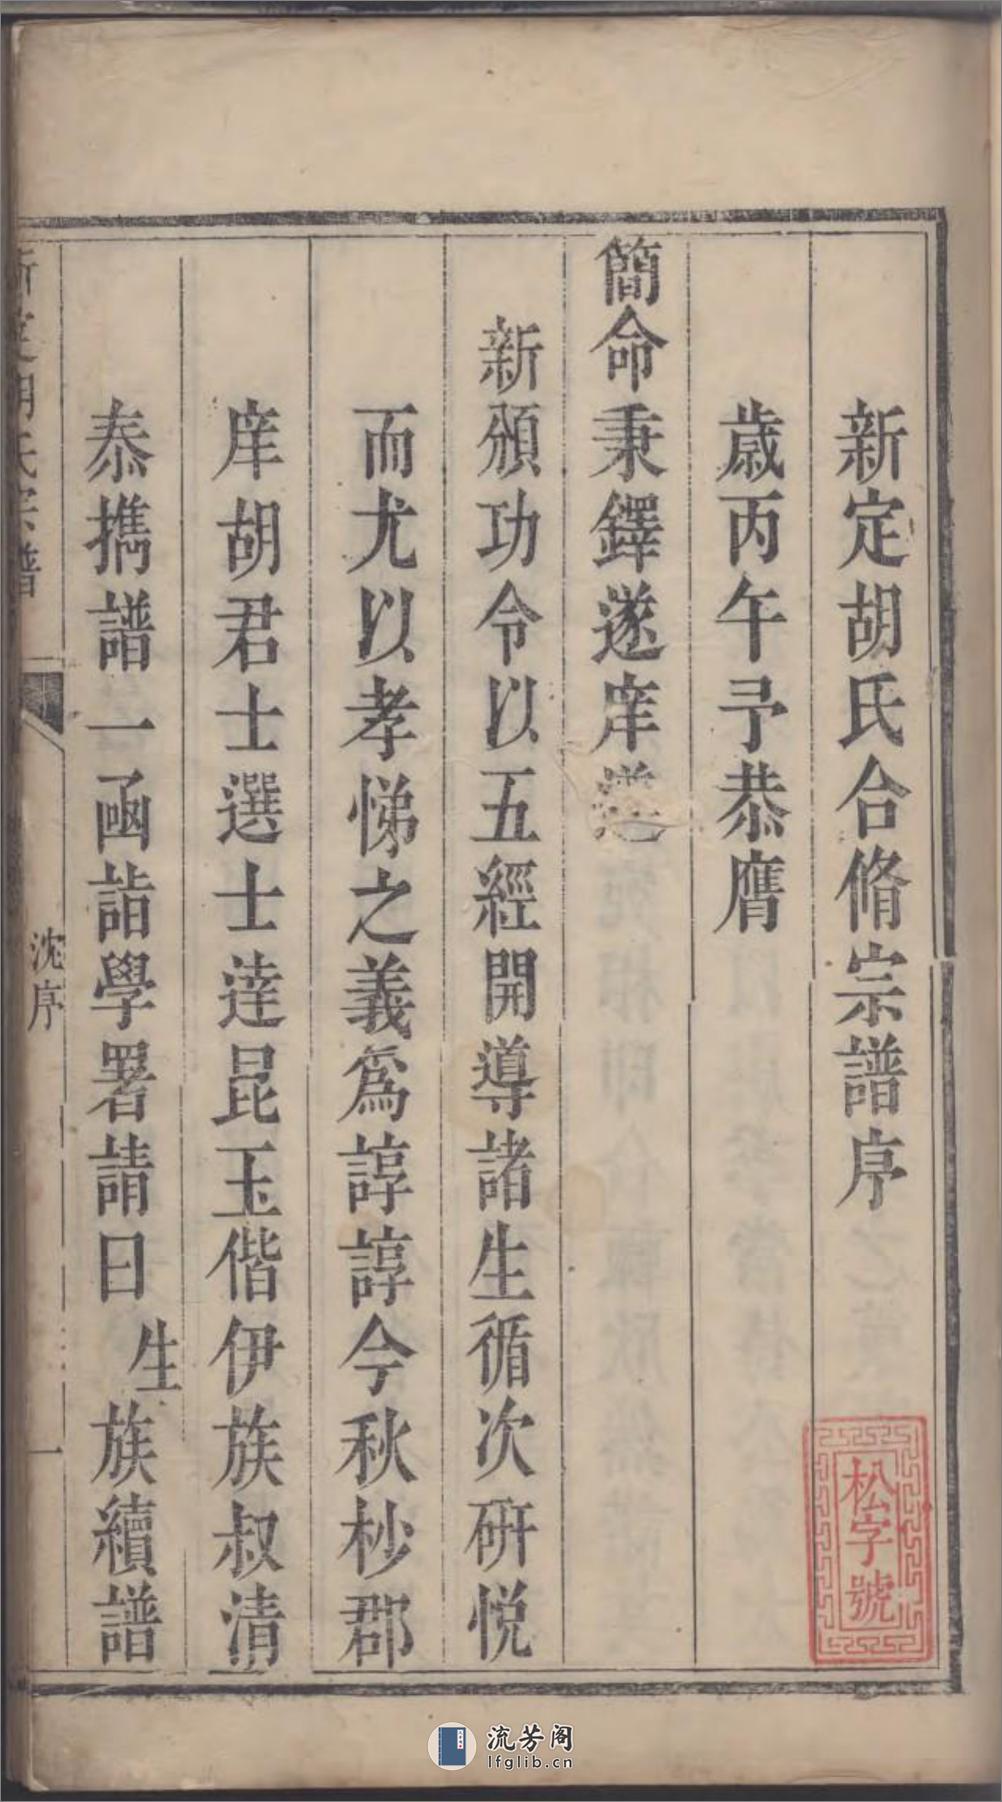 新定胡氏合脩宗譜序
歲丙午予恭膺
簡命秉鐸遂庠
新頒功令以五經開導諸生循次研悅
而尤以孝悌之義爲諄諄今秋杪郡
庠胡君士選士逹昆玉偕伊族叔清
泰攜譜一函詣學署請曰生族續譜
新定胡氏宗譜
沈序
一
松字號
流芳阁
lfglib.cn